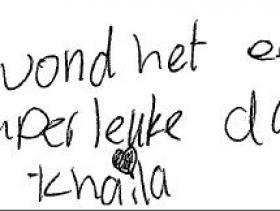 vond het e
perleuke da
-khaila